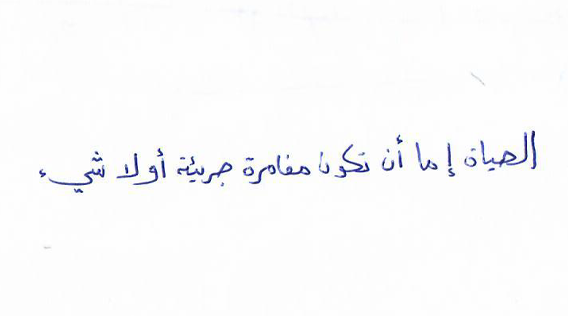 الحياة إما أن تكون مغامرة جريئة أو لا شيء